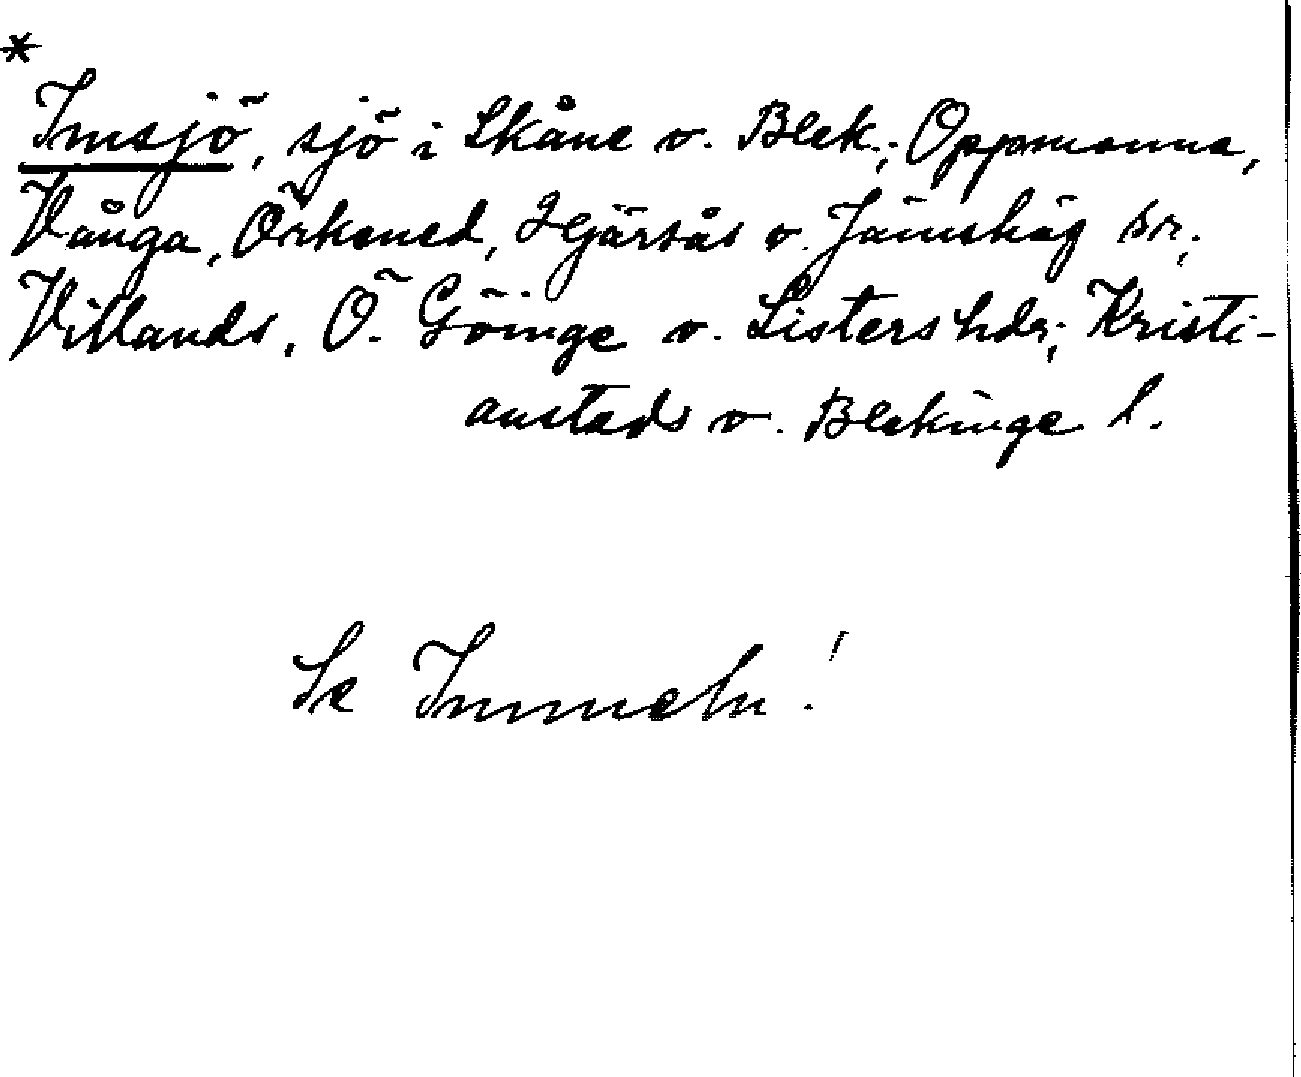 *
Imsjö, sjö i Skåne o. Blek.; Oppmanna,
Vånga, Örkened, Hjärsås o. Jämshög sn,
Villands, Ö. Göinge o. Listers hdr; Kristi-
anstads o. Blekinge l.
Se Immeln!